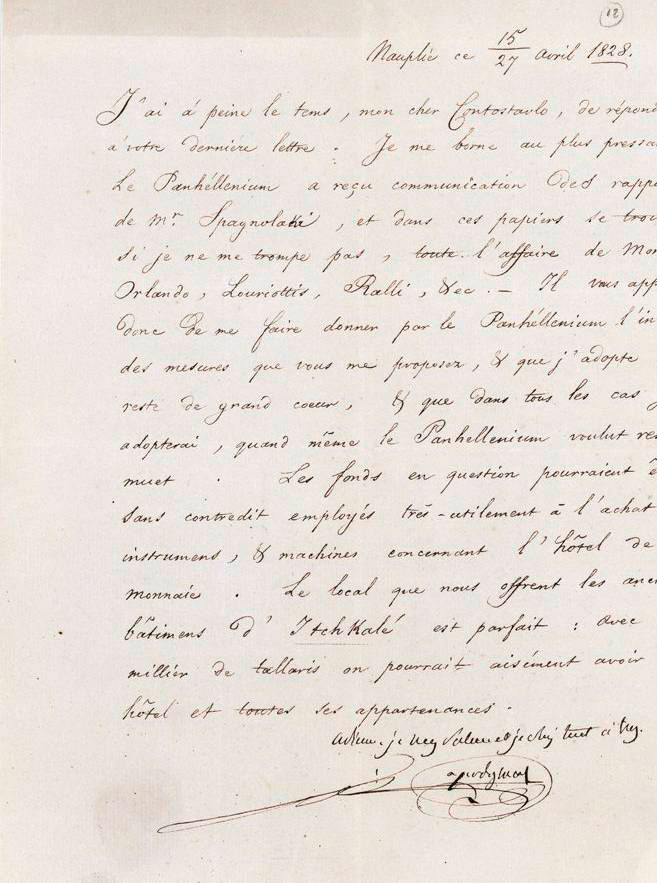 12
Nauplie ce 15/27 avril 1828.
J'ai à peine le tems, mon cher Contostavlo, de répond
à votre dernière lettre. Je me borne au plus pressa
Le Panhéllenium a reçu communication des rappo
de Mr. Spagnolaki, et dans ces papiers se trou
si je ne me trompe pas, toute l'affaire de Mo
Orlando, Louriottis, Ralli, &ec. — Il vous app
donc de me faire donner par le Panhéllenium l'in
des mesures que vous me proposez, & que j'adopte
reste de grand coeur, & que dans tous les cas j
adopterai, quand même le Panhellenium voulut res
muet. Les fonds en question pourraient ê
sans contredit employés très-utilement à l'achat
instrumens, & machines concernant l'hôtel de
monnaie. Le local que nous offrent les anc
bâtimens d'Itch Kalé est parfait: avec
millier de tallaris on pourrait aisément avoir
hôtel et toutes ses appartenances.
je tout